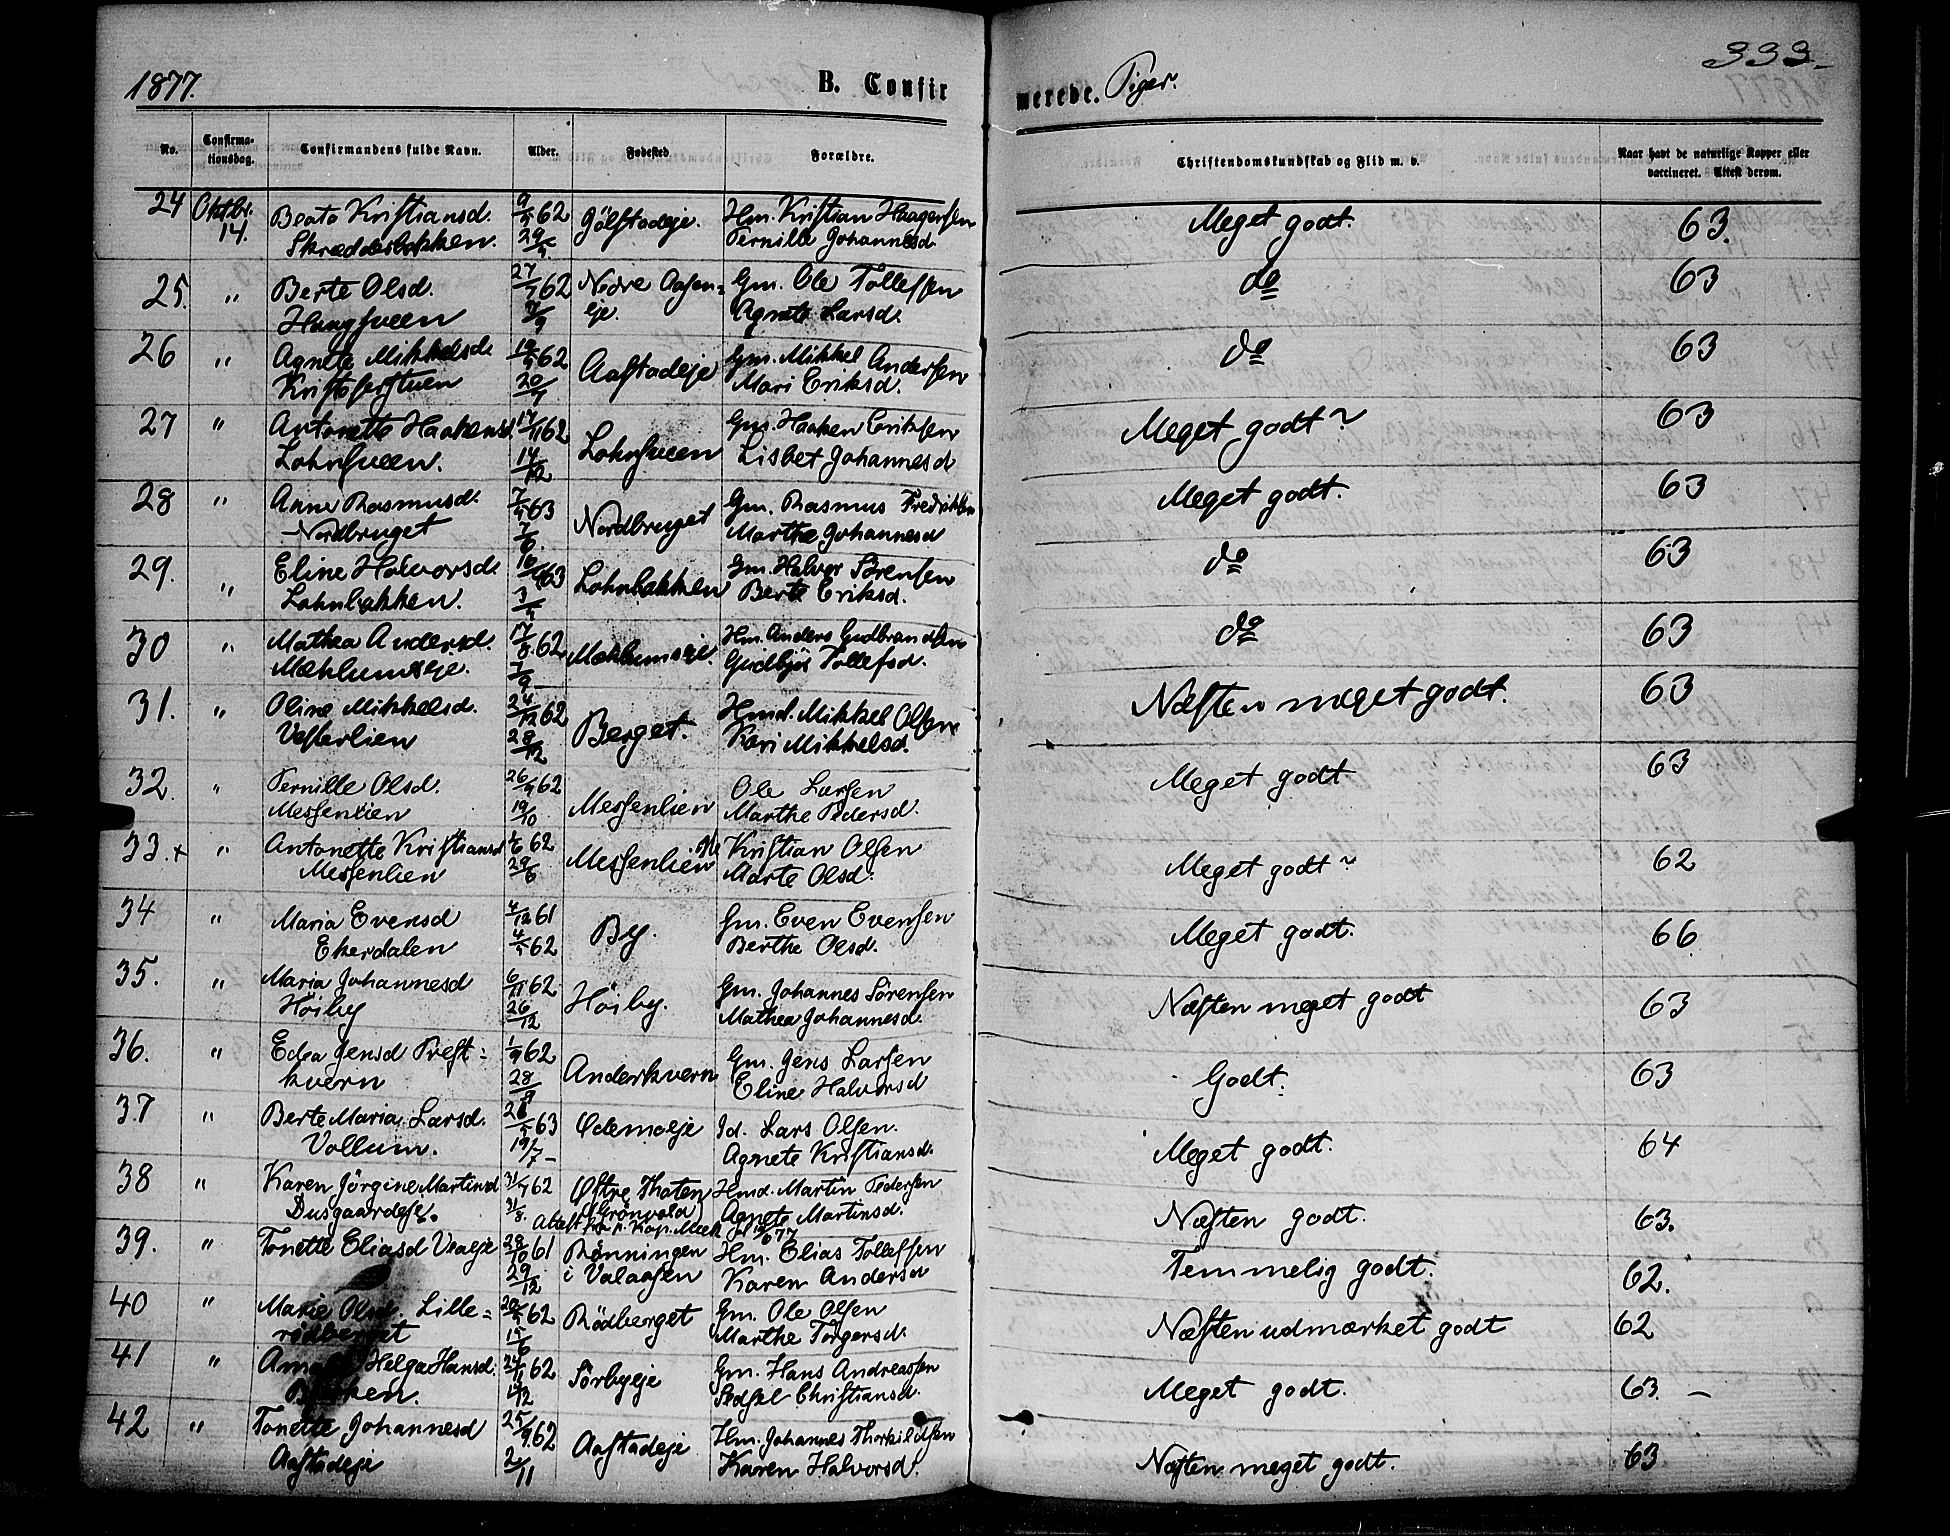 1877.
B. Confir
merede. Piger.
333.
No.
Confirma-
tionsdag.
Confirmandens fulde Navn.
Alder.
Fødested.
Forældre.
Christendomskundskab og Flid m. v.
Naar havt de naturlige Kopper eller
vaccineret. Attest derom.
24 Oktbr. 14. Beate Kristiansd. 9/5 62 Gölstadeje. Hm. Kristian Haagensen Meget godt. 63.
Skrædderbakken. 29/5 Pernille Johannesd.
25. " Berte Olsd. 27/7 62 Nedre Aasen= Gm. Ole Tollefsen do 63
Haugsveen 9/9 eje. Agnete Larsd.
26 " Agnete Mikkelsd. 62 Aastadeje Gm. Mikkel Andersen do 63
Kristoferstuen 20/7 Mari Eriksd.
27 " Antonette Haakensd. 17/11 62 Lohnsveen Gm. Haaken Eriksen Meget godt ~ 63
Lohnsveen. 14/12 Lisbet Johannesd
28 " Anne Rasmusd. 7/5 63 Nordbruget Gm. Rasmus Fredriksen Meget godt. 63
Nordbruget 7/6. Marthe Johannesd
29. " Eline Halvorsd. 63 Lohnbakken Gm. Halvor Sörensen do 63
Lohnbakken. Berte Eriksd.
30 " Mathea Andersd. 17/8 62 Mæhlumseje. Hm. Anders Gudbrandsen do 63
Mæhlumseje. 7/9 Gudbjör Tollefsd.
31. " Oline Mikkelsd. 24/12 62 Berget. Hmd. Mikkel Olsen Næsten meget godt. 63
Vesterlien 28/12 Kari Mikkelsd.
32. " Pernille Olsd. 26/9 62 Messenlien Ole Larsen Meget godt 63
Messenlien 19/10 Marthe Pedersd.
33.+ " Antonette Kristiansd 62 Messenlien eje Kristian Olsen Meget godt ~ 62
Messenlien 29/6 Marte Olsd.
34 " Maria Evensd 4/12 61 By. Gm. Even Evensen Meget godt. 66.
Ekerdalen 4/5 62 Berthe Olsd.
35. " Maria Johannesd 6/11 62 Höiby. Gm. Johannes Sörensen Næsten meget godt 63
Höiby 26/12 Mathea Johannesd.
36. " Edea Jensd Prest= 1/9 62 Anderkvern Gm. Jens Larsen Godt. 63
kvern 28/9 Eline Halvorsd
37 " Berte Maria Larsd. 63 Ødemoeje Id. Lars Olsen. Meget godt. 64
Vollum. 19/7 - Agnete Kristiansd.
38 " Karen Jörgine Martinsd 31/7 62 Østre Thoten Hmd. Martin Pedersen Næsten godt. 63.
Dusgaardeje. 31/8. (Grönvold) Agnete Martinsd.
Attest fra p. Kap. Meek
39. " Tonette Eliasd Vealeje 28/10 61 Rønningen Hm. Elias Tollefsen Temmelig godt. 62.
29/12 i Valaasen Karen Andersd
40 " Marie Olsd. Lille= 62 Rödberget Gm. Ole Olsen Næsten udmærket godt 62
rødberget 15/6 Marthe Torgersd.
41 " Helga Hansd. 24/11 62 Sörbyeje Gm. Hans Andreassen Meget godt. 63. -
Sedsel Christiansd.
42 " Tonette Johannesd 25/9 62 Aastadeje Hm. Johannes Thorkildsen Næsten meget godt. 63
Aastadeje 2/11 Karen Halvorsd.